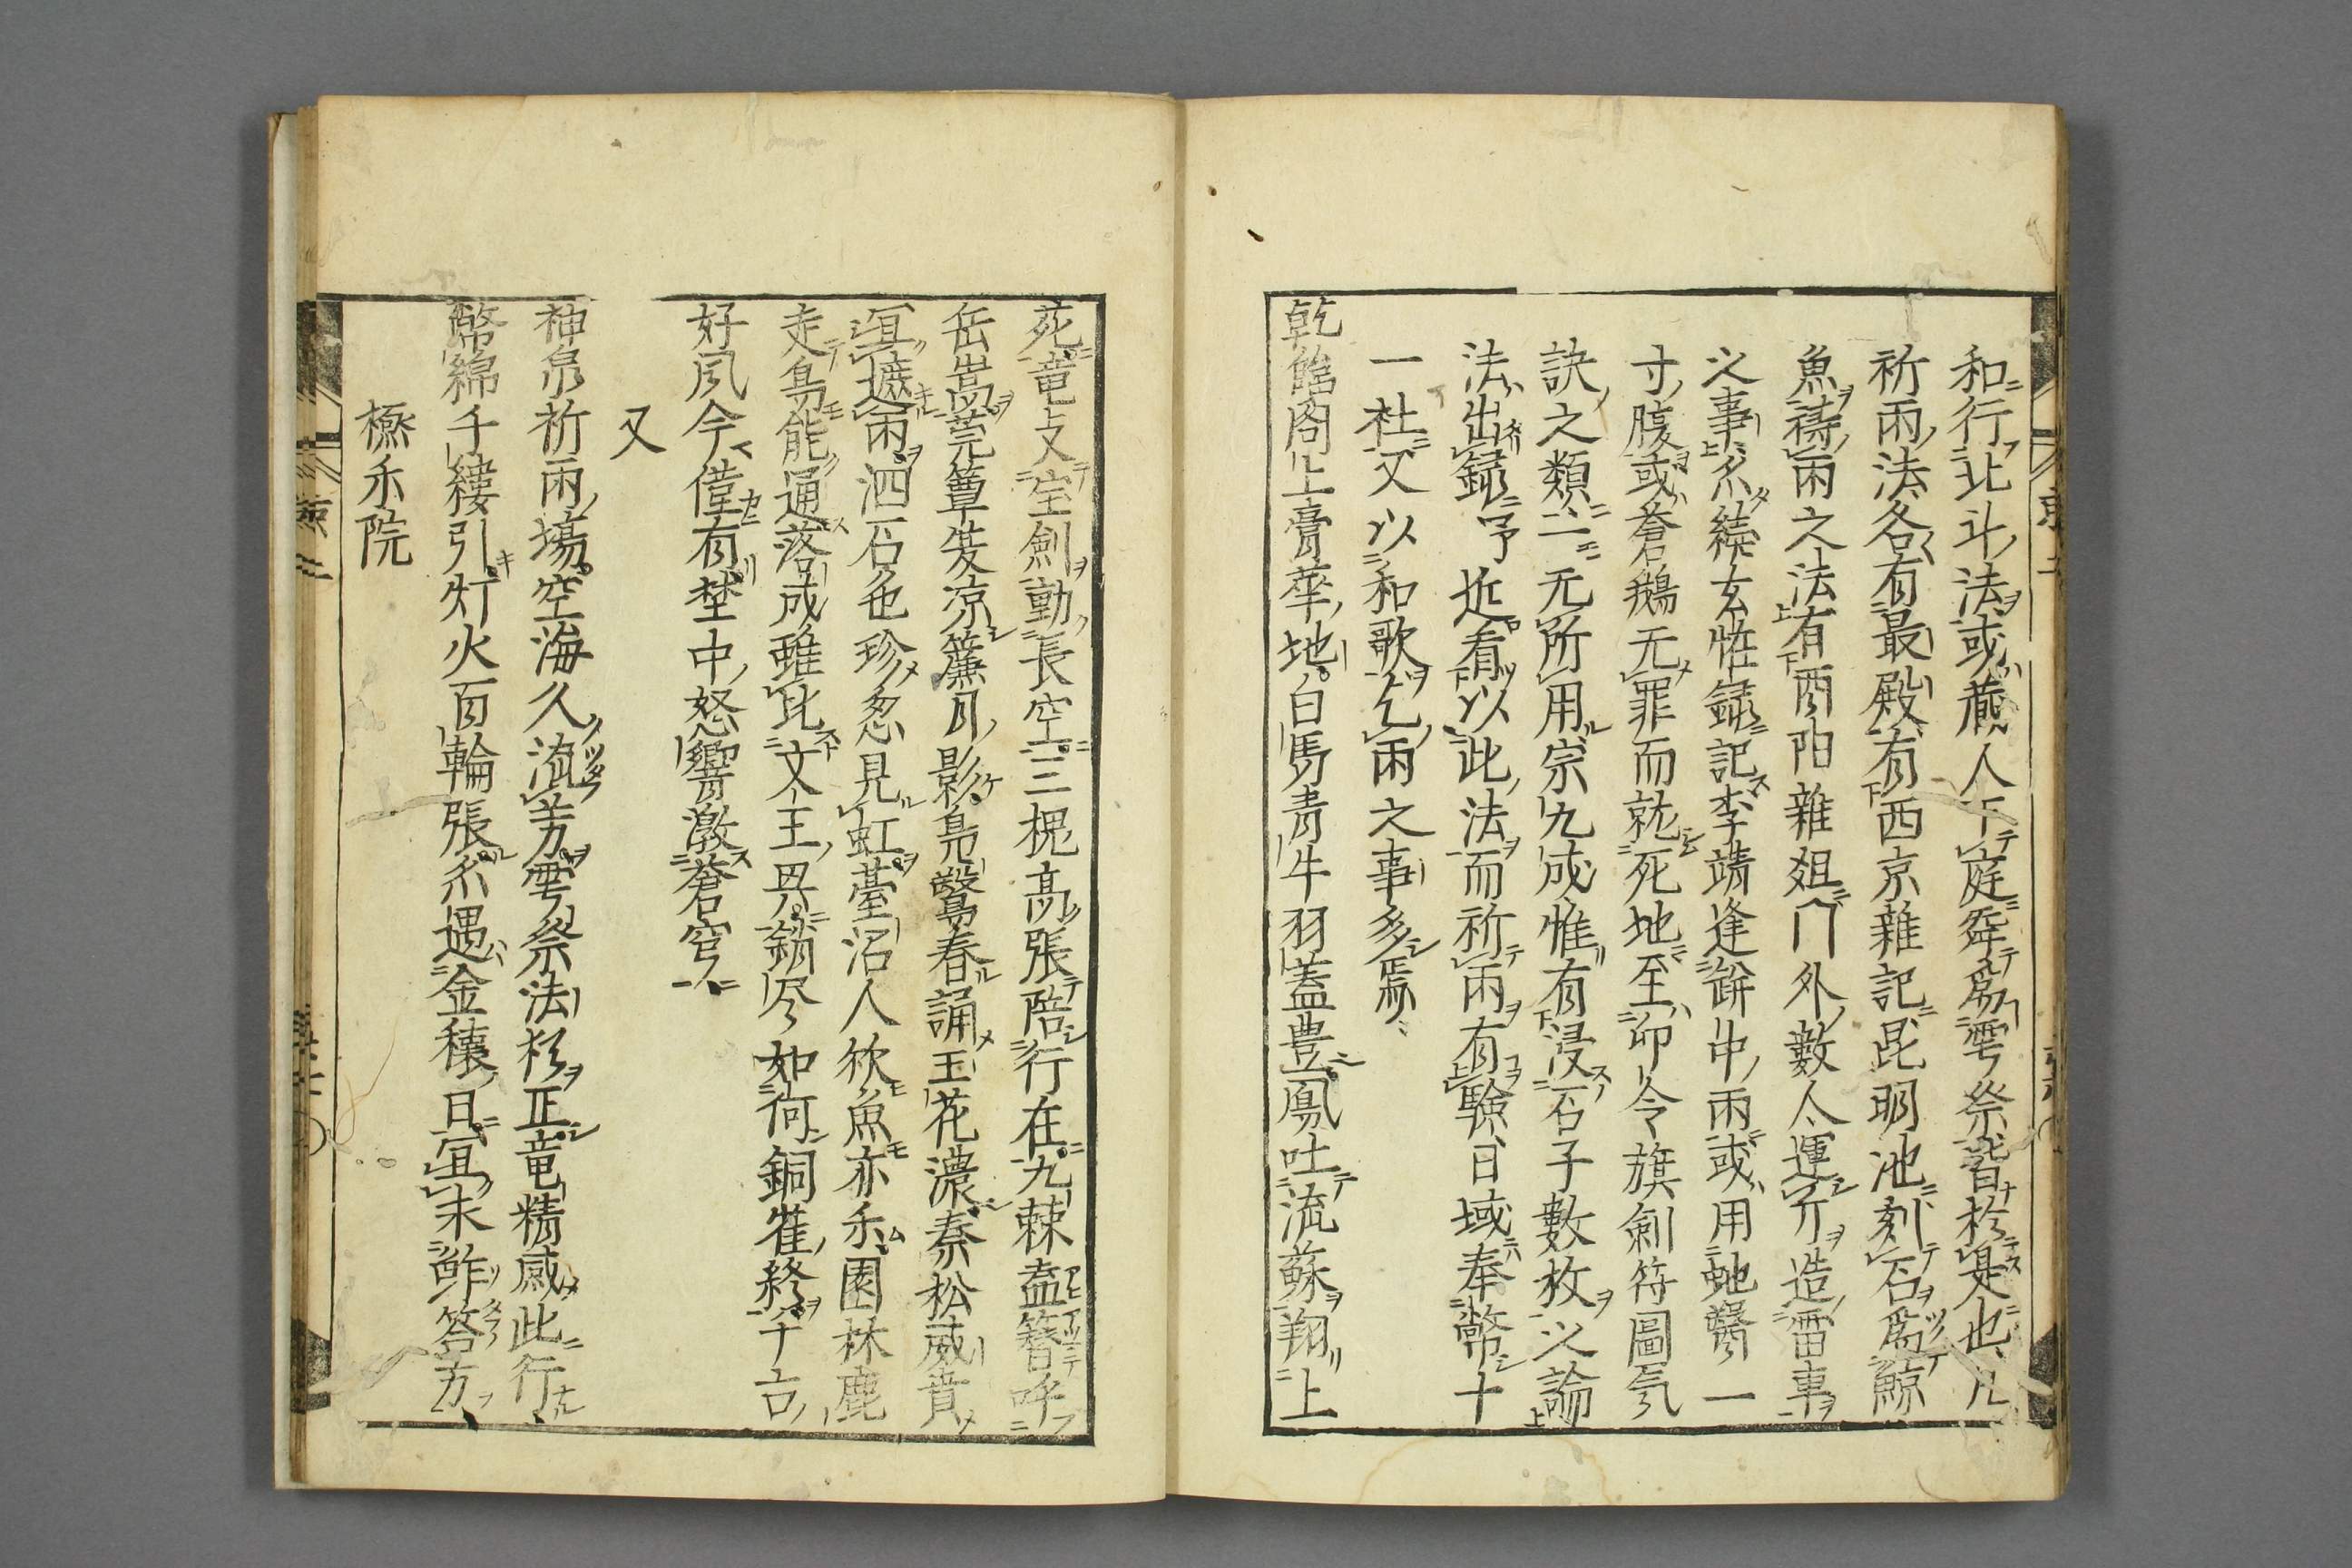 和行北斗法或燕人下庭舜為雩祭皆於是也凡
祈雨法各有最殿有西京雜記昆明池刻石為鯨
魚禱雨之法有酉陽雜俎門外數人運斤造雷車
之事系続玄恠録記李靖逢餅中雨或用虵醫一
寸腹或蒼鵝无罪而就死地至卯令旗剣符圖気
訣之類亠无所用宗九成惟有浸石子數枚之論
法出録予近看以此法而祈雨有験日域奉幣十
一社又以和歌乞雨之事多焉
乾臨閣上膏華地白馬青牛羽蓋豊鳳吐流蘇翔上
苑竜文宝劍動長空三槐高張陪行在九棘盍簪呼
岳嵩莞簟安涼簾月影島鶯春誦玉花濃秦松威賁
冝遮雨泗石色珍忽見虹臺沼人欣魚亦楽園林鹿
走鳥能通落成雖比文王囿銷尽如何銅雀終千古
好風今僅有埜中怒響激蒼穹
又
神泉祈雨場空海久流芳雩祭法於正竜精感此行
幣綿千縷引灯火百輪張系遇金穰日冝未鮓答方
極楽院